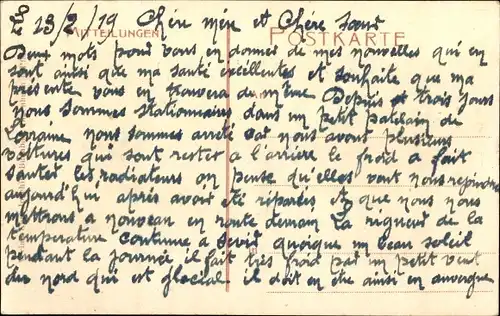 Le 13/2/19 Chère mère et Chère sœur
MITTEILUNGEN POSTKARTE
Deux mots pour vous en donner de mes nouvelles qui en
sont ainsi que ma santé excellentes et souhaite que ma
présente vous en trouvera de même Depuis trois jours
nous sommes stationnaires dans un petit patelin de
Lorraine nous sommes arrété car nous avons plusieurs
voitures qui sont rester a l'arrière le froid a fait
sauter les radiateurs on pense qu'elles vont nous rejoindre
aujourd'hui après avoir été réparées et que nous nous
mettrons a nouveau en route demain la rigueur de la
température continue a sevir quoique un beau soleil
pendant la journée il fait très froid par un petit vent
du nord qui est glacial il doit en être ainsi en auvergne